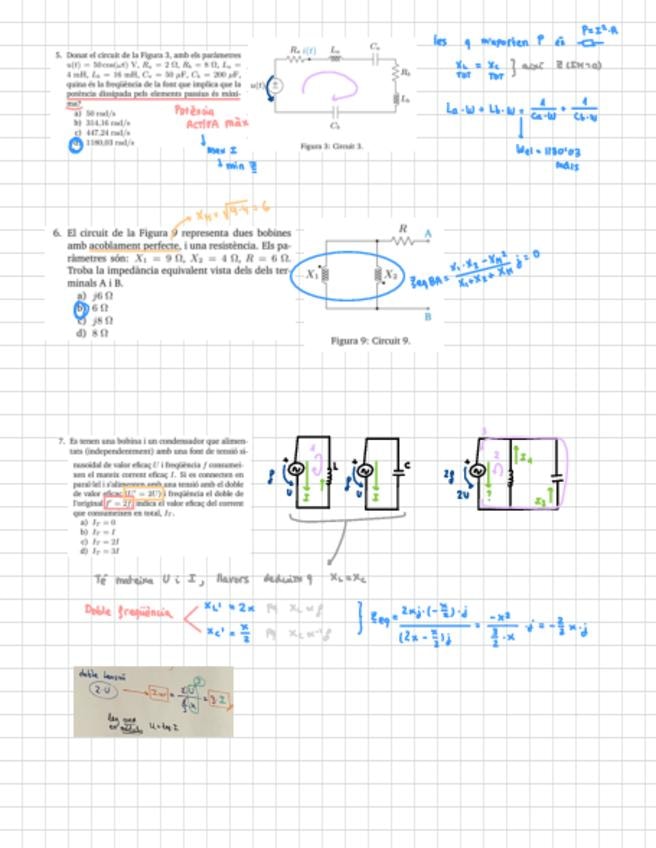 5. Donat el circuit de la Figura 3, amb els paràmetres
u(t) = 50 cos(ωt) V, Rₐ = 2 Ω, R_b = 8 Ω, Lₐ =
4 mH, L_b = 16 mH, Cₐ = 50 μF, C_b = 200 μF,
quina és la freqüència de la font que implica que la
potència dissipada pels elements passius és màxi-
ma?
a) 50 rad/s
b) 314,16 rad/s
c) 447,24 rad/s
d) 1180,03 rad/s
Potència
ACTIVA màx
max I
min Z
Rₐ i(t) Lₐ Cₐ
u(t)
R_b
L_b
C_b
Figura 3: Circuit 3.
les q m'aporten P és
P=I²·R
X_L TOT = X_C TOT
La·W + Lb·W = 1/Ca·W + 1/Cb·W
Wel = 1180'03
rad/s
X_M = √9·4 = 6
6. El circuit de la Figura 9 representa dues bobines
amb acoblament perfecte, i una resistència. Els pa-
ràmetres són: X₁ = 9 Ω, X₂ = 4 Ω, R = 6 Ω.
Troba la impedància equivalent vista dels dels ter-
minals A i B.
a) j6 Ω
b) 6 Ω
c) j8 Ω
d) 8 Ω
R A
X₁ X₂
B
Figura 9: Circuit 9.
j = 0
7. Es tenen una bobina i un condensador que alimen-
tats (independentment) amb una font de tensió si-
nusoidal de valor eficaç U i freqüència f consumei-
xen el mateix corrent eficaç I. Si es connecten en
paral·lel i s'alimenten amb una tensió amb el doble
de valor eficaç (U' = 2U) i freqüència el doble de
l'original (f' = 2f) indica el valor eficaç del corrent
que consumeixen en total, I_T.
a) I_T = 0
b) I_T = I
c) I_T = 2I
d) I_T = 3I
2f
2U
Té mateixa U i I, llavors deduim q X_L = X_C
Doble freqüència
X_L' = 2x
X_C' = x/2
Zeq = 2xj·(-x/2)·j / (2x - x/2)j = -x² / 3/2·x · j = -2/3 x·j
doble tensió
2U